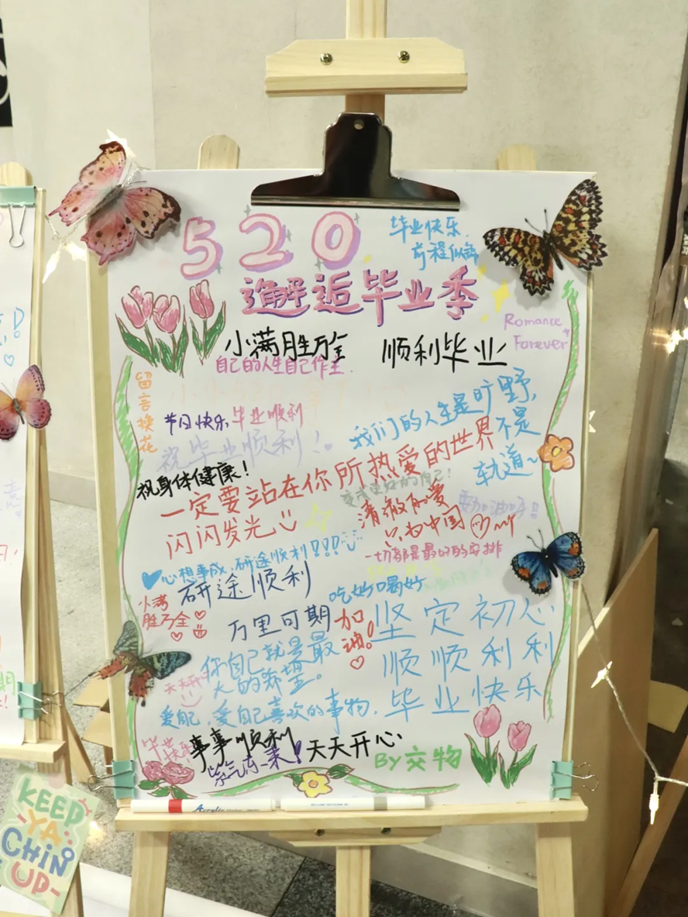 520
毕业快乐
前程似锦
邂逅毕业季
Romance
Forever
小满胜万全
顺利毕业
自己的人生自己作主.
留言换花
节日快乐 毕业顺利
我们的人生是旷野,
不是
轨道~
祝毕业顺利!
祝身体健康!
一定要站在你所热爱的世界
闪闪发光
清澈的爱
只为中国
一切都是最好的安排
心想事成,研途顺利!!!
研途顺利
吃好喝好
小满
胜万全
万里可期
加油!
坚定初心
顺顺利利
毕业快乐
你自己就是最
大的希望。
天天开心
爱自己,爱自己喜欢的事物.
事事顺利
紫气东来!
天天开心
By交物
Acrylic
KEEP
YA
CHIN
UP